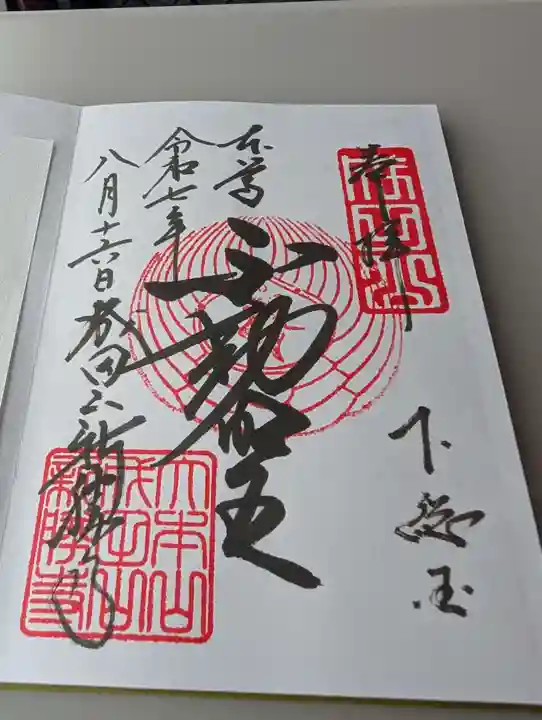 奉拝
下総国
本尊
不動明王
令和七年
八月十六日 成田山新勝寺
大本山
成田山
新勝寺